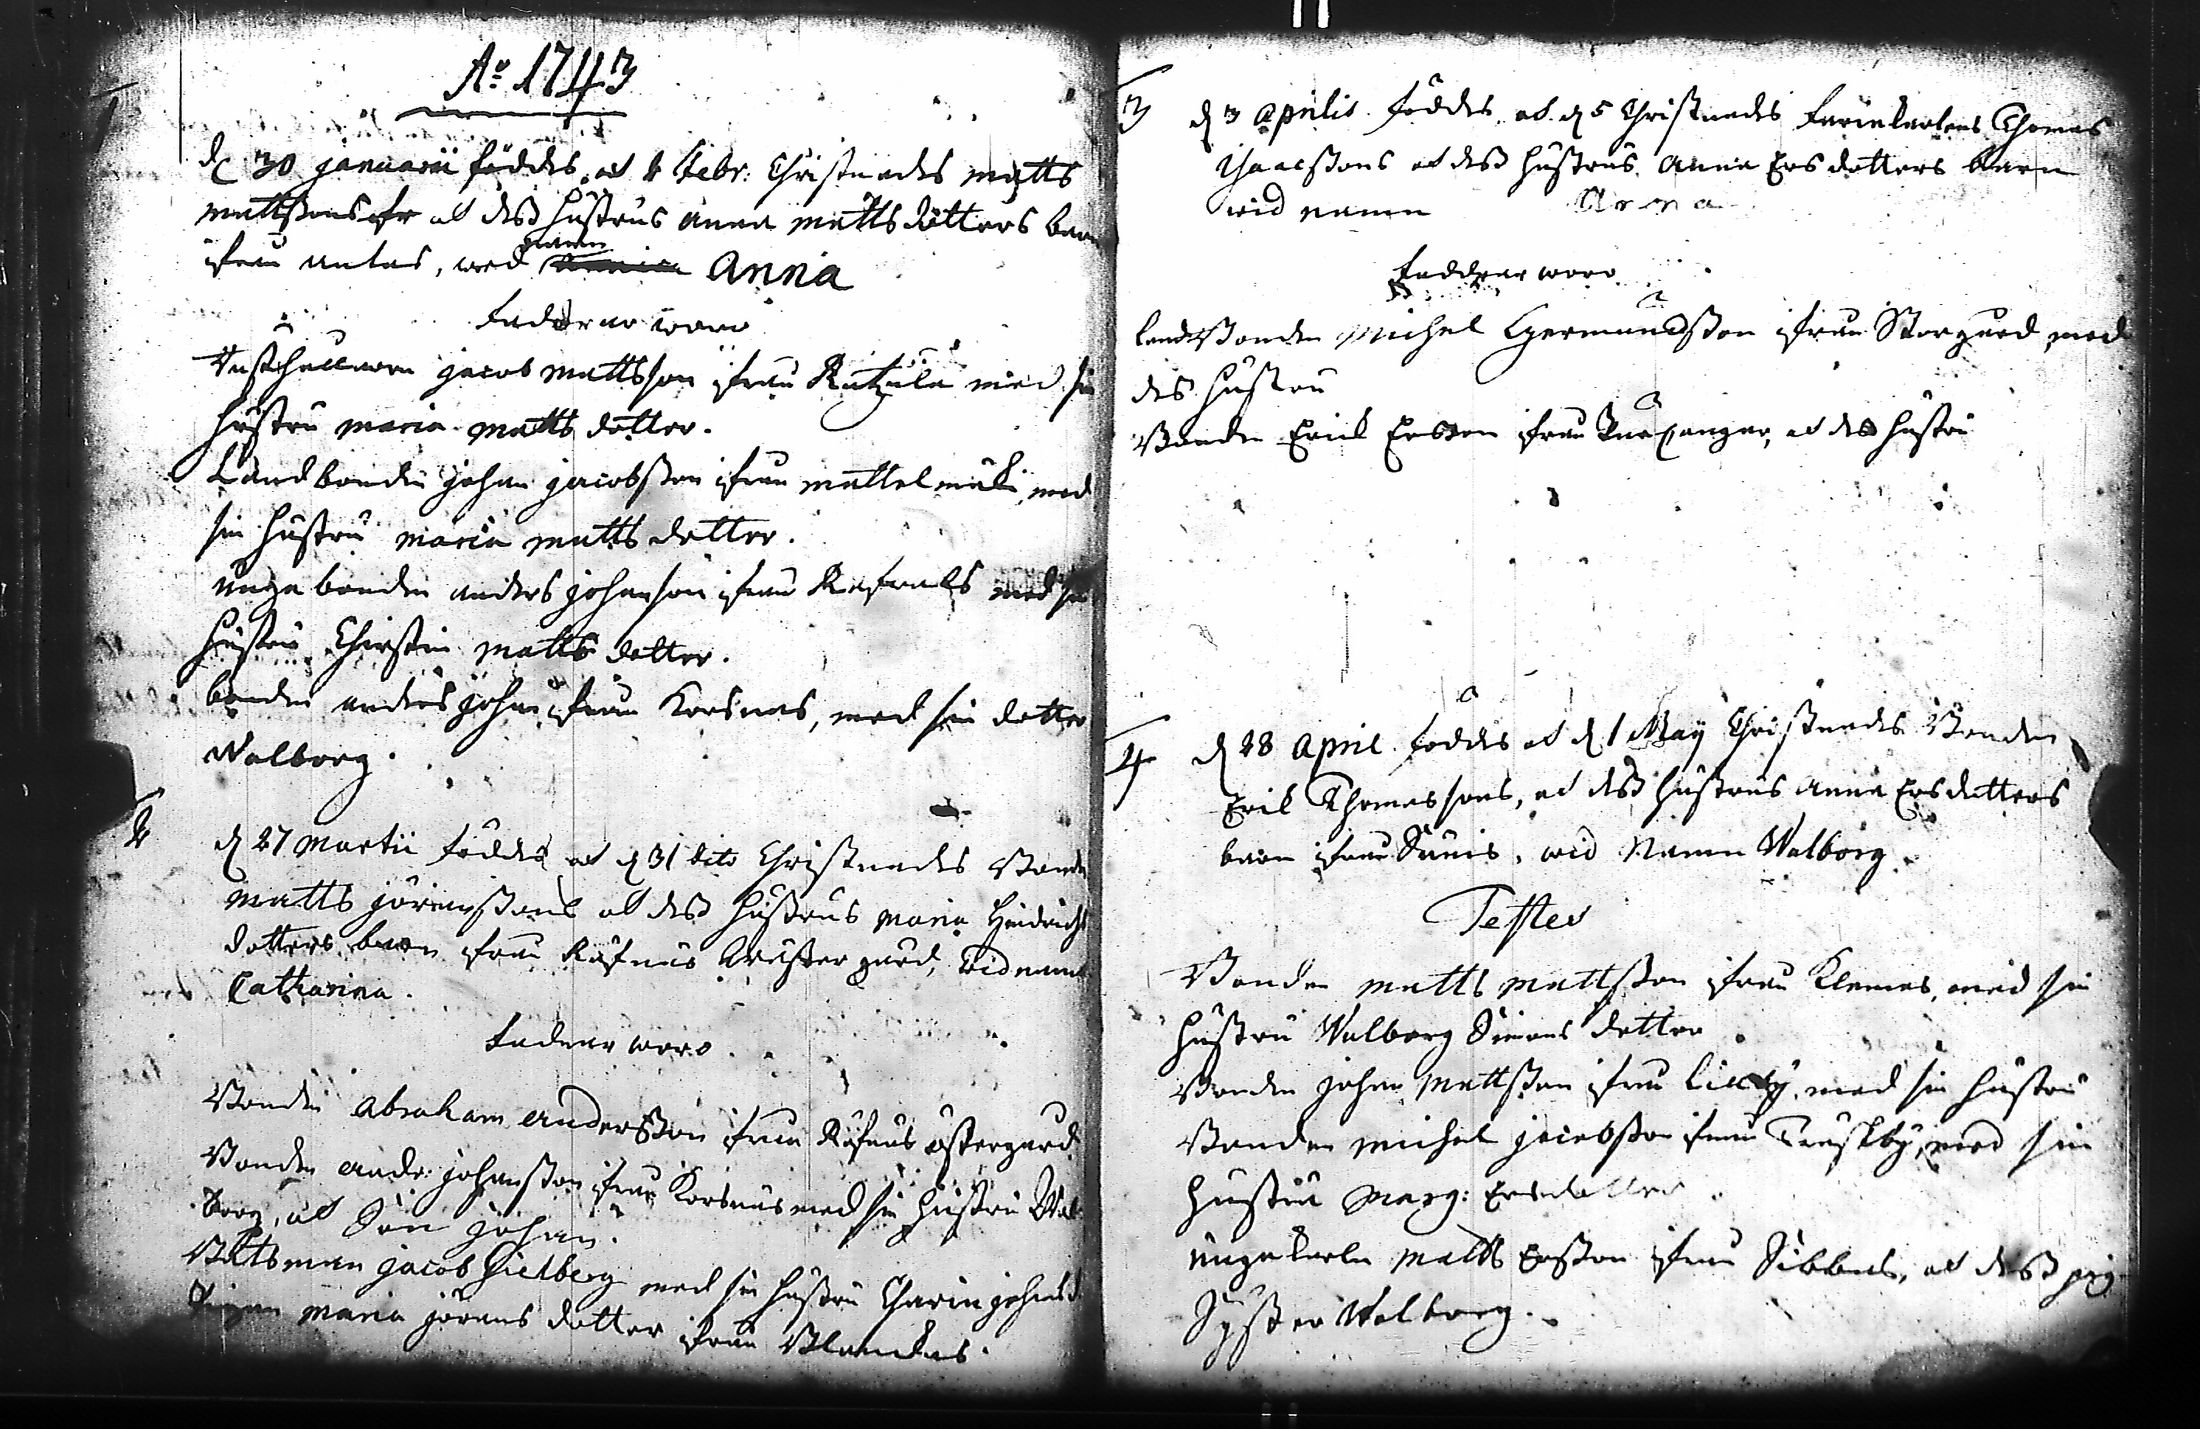 A:o 1743
1
d 30 januarii föddes, ok 2 Febr: Christnades matts
mattssons ok dess hustrus anna matts dotters barn
ifrån antas, wed namn Anna
Faddrar woro
jacob mattsson ifrån Rutzula med sin
hustru maria matts dotter.
Landbonden johan jacobsson ifrån mattelmäki, med
sin hustru maria matts dotter.
unga bonden anders johansson ifrån Refnals med sin
hustru Christin matts dotter.
bonden anders johan ifrån Korsnas, med sin dotter
Walborg.
2
d 27 Martii föddes ok d 31 dito Christnades Bonden
matts göranssons ok dess hustrus maria Hindrichs
dotters barn ifrån Räfnäs gård, wid namn
Catharina.
Faddrar woro
Bonden Abraham andersson ifrån Räfnäs östergård
Bonden ande: johansson ifrån Korsnäs med sin hustru Wal
borg, ok Son johan.
Båtsman jacob Hielberg med sin hustru Charin johansd
Pigan maria görans dotter ifrån Blandas.
3
d 3 Aprilis föddes ok d 5 Christnades Thomas
Isaacssons ok dess hustrus Anna Ersdotters barn
wid namn Anna
Faddrar woro
landbonden Michel Germundsson ifrån Storgård med
des hustru
Bonden Erich Ersson ifrån ok des hustru
4
d 28 April föddes ok d 1 May Christnades Bonden
Erik Thomassons, ok dess hustrus Anna Ersdotters
barn ifrån Sunis, wid Namn Walborg.
Testes
Bonden matts mattsson ifrån Klemes, med sin
hustru Walborg Simons dotter
Bonden johan Mattsson ifrån Lillby, med sin hustru
Bonden michel jacobsson ifrån med sin
hustru Marg: Ersdotter.
ungakarlen matts Ersson ifrån Sibbes, ok dess pig
Syster Walborg.